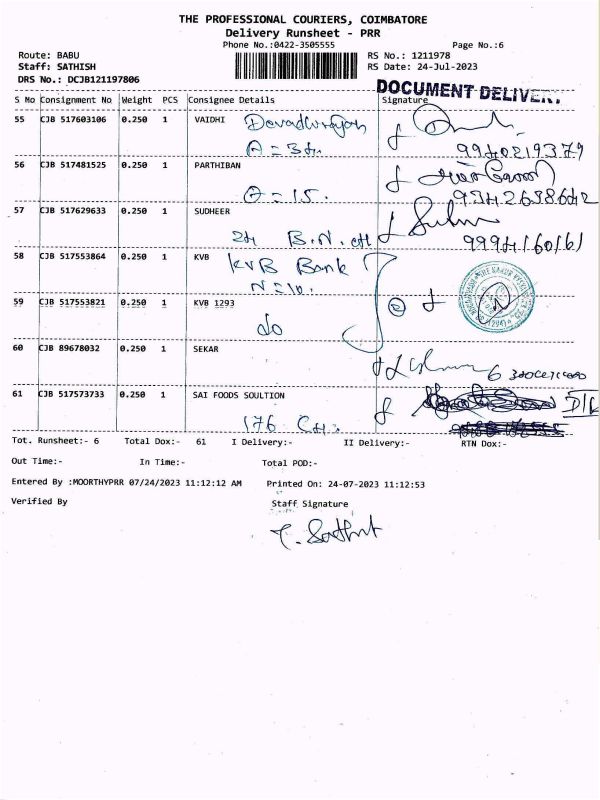 THE PROFESSIONAL COURIERS, COIMBATORE
Delivery Runsheet - PRR
Phone No.:0422-3505555 Page No.:6
Route: BABU RS No.: 1211978
Staff: SATHISH RS Date: 24-Jul-2023
DRS No.: DCJB121197806
DOCUMENT DELIVE
S No Consignment No Weight PCS Consignee Details Signature
55 CJB 517603106 0.250 1 VAIDHI
9940219379
56 CJB 517481525 0.250 1 PARTHIBAN
9342638642
57 CJB 517629633 0.250 1 SUDHEER
24 B.N.
9994160161
58 CJB 517553864 0.250 1 KVB KVB Bank
59 CJB 517553821 0.250 1 KVB 1293
do
60 CJB 89678032 0.250 1 SEKAR
61 CJB 517573733 0.250 1 SAI FOODS SOULTION
176
Tot. Runsheet:- 6 Total Dox:- 61 I Delivery:- II Delivery:- RTN Dox:-
Out Time:- In Time:- Total POD:-
Entered By :MOORTHYPRR 07/24/2023 11:12:12 AM Printed On: 24-07-2023 11:12:53
Verified By Staff Signature